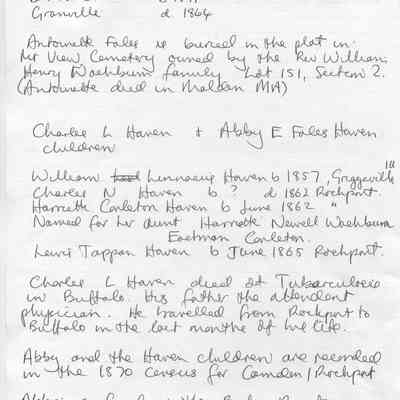 Granville d 1864
Antoinette Fales is buried in the plot in
Mt View Cemetery owned by the Rev William
Henry Washburn family Lot 151, Section 2.
(Antoinette died in Maldon MA)
Charles L Haven + Abby E Fales Haven
children
William Linnaeus Haven b 1857, Griggsville Ill
Charles N Haven b ? d 1862 Rockport.
Harriette Carleton Haven b June 1862 "
Named for her aunt Harriette Newell Washburn
Eastman Carleton.
Lewis Tappan Haven b June 1865 Rockport.
Charles L Haven died of Tuberculosis
in Buffalo. His father the attendent
physician. He travelled from Rockport to
Buffalo in the last months of his life.
Abby and the Haven children are recorded
in the 1870 census for Camden/Rockport